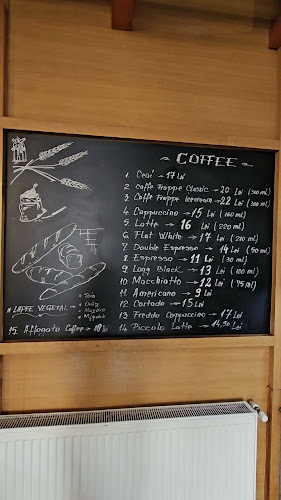 ~ COFFEE ~
1. Ceai → 17 Lei
2 caffe Frappe Classic → 20 Lei (300 ml)
3. Caffe Frappe Icecream → 22 Lei (300 ml)
4. Cappuccino → 15 Lei (160 ml)
5. Latte → 16 Lei (220 ml)
6. Flat White → 17 Lei (210 ml)
7 Double Espresso → 14 Lei (50 ml)
8 Espresso → 11 Lei (30 ml)
9 Long Black → 13 Lei (100 ml)
10 Macchiatto → 12 Lei (75 ml)
11 Americano → 9 Lei
12 Cortado → 15 Lei
13 Freddo Cappuccino → 17 Lei
14 Piccolo Latte → 14,50 Lei
* LAPTE VEGETAL
• Soia
• Ovăz
• Mazăre
• Migdale
15. Affogato Coffee → 18 lei